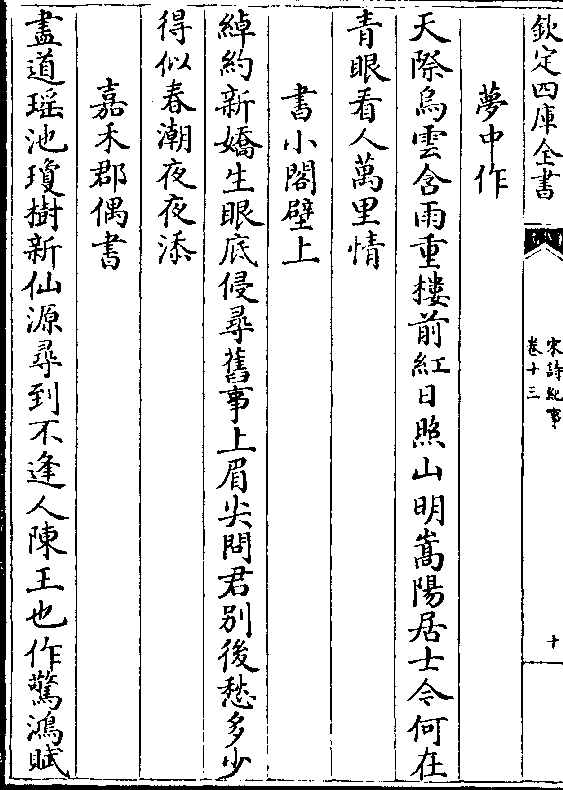 欽定四庫全書
宋詩紀事
卷十三
十
夢中作
天際烏雲含雨重樓前紅日照山明嵩陽居士今何在
青眼看人萬里情
書小閣壁上
綽約新嬌生眼底侵尋舊事上眉尖問君別後愁多少
得似春潮夜夜添
嘉禾郡偶書
盡道瑶池瓊樹新仙源尋到不逢人陳王也作驚鴻賦